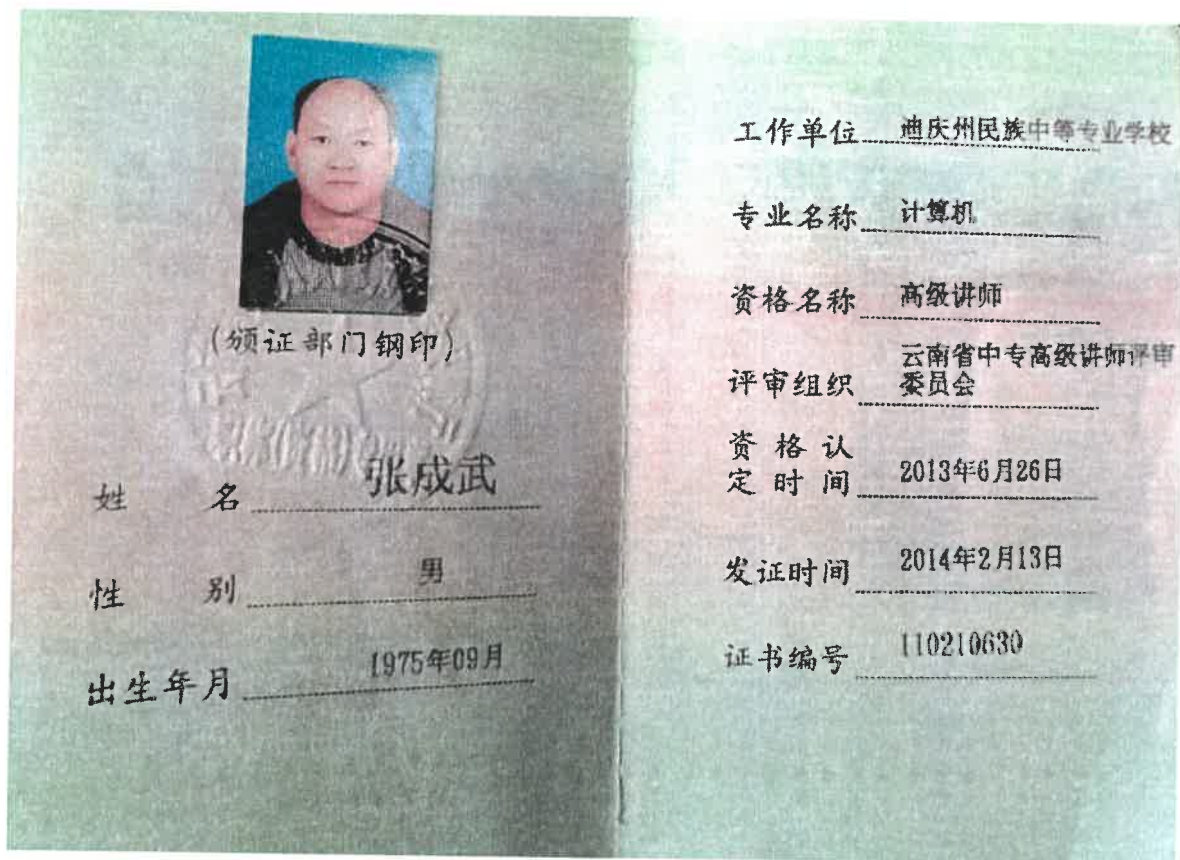 (颁证部门钢印)
姓名 张成武
性别 男
出生年月 1975年09月
工作单位 迪庆州民族中等专业学校
专业名称 计算机
资格名称 高级讲师
云南省中专高级讲师评审
评审组织 委员会
资格认
定时间 2013年6月26日
发证时间 2014年2月13日
证书编号 110210630